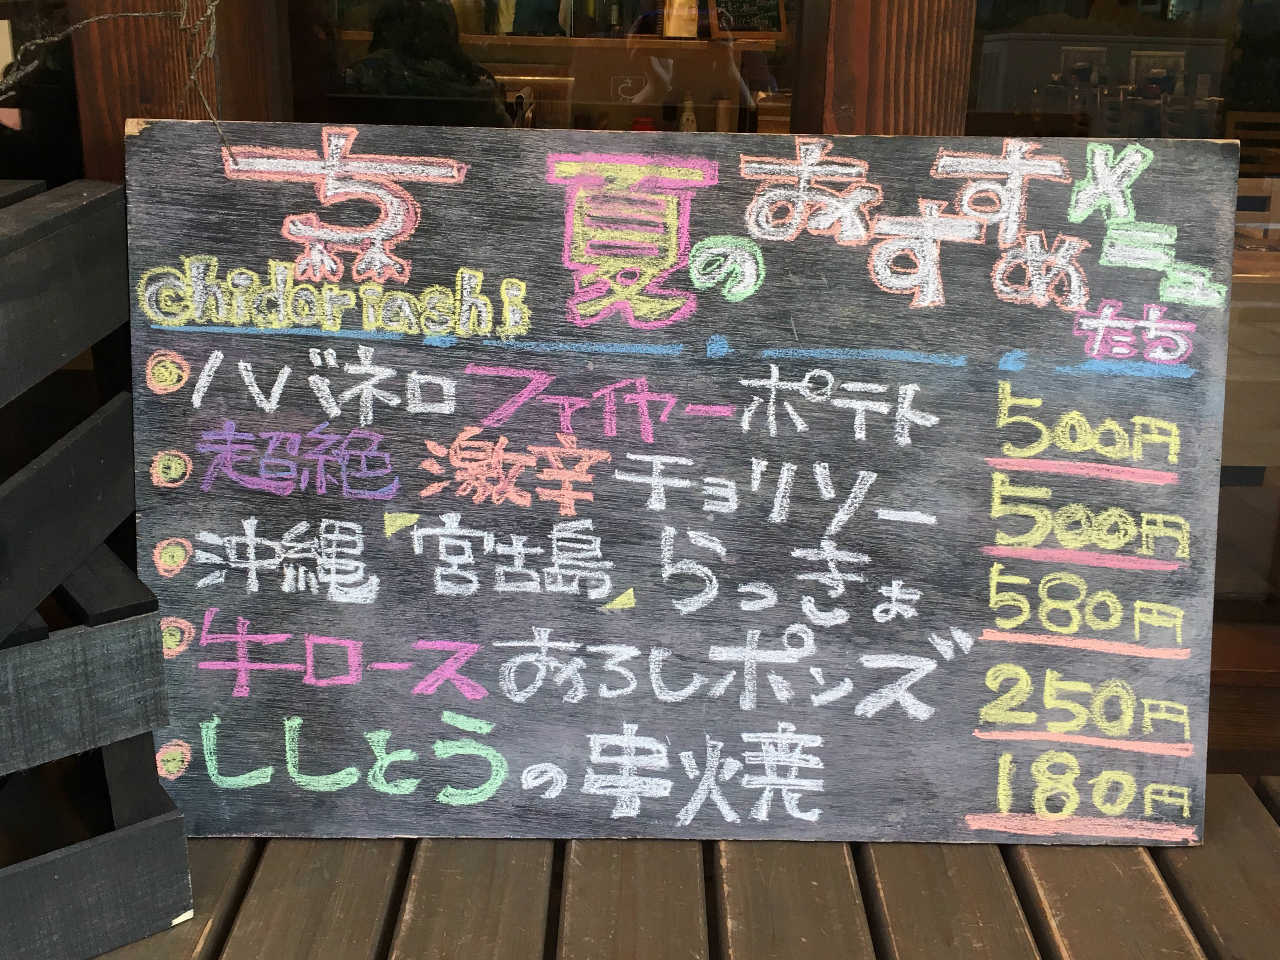 京 夏のおすすめメニューたち
chidoriashi
ハバネロファイヤーポテト 500円
超絶 激辛チョリソー 500円
沖縄「宮古島」らっきょ 580円
牛ロースおろしポンズ 250円
ししとうの串焼 180円